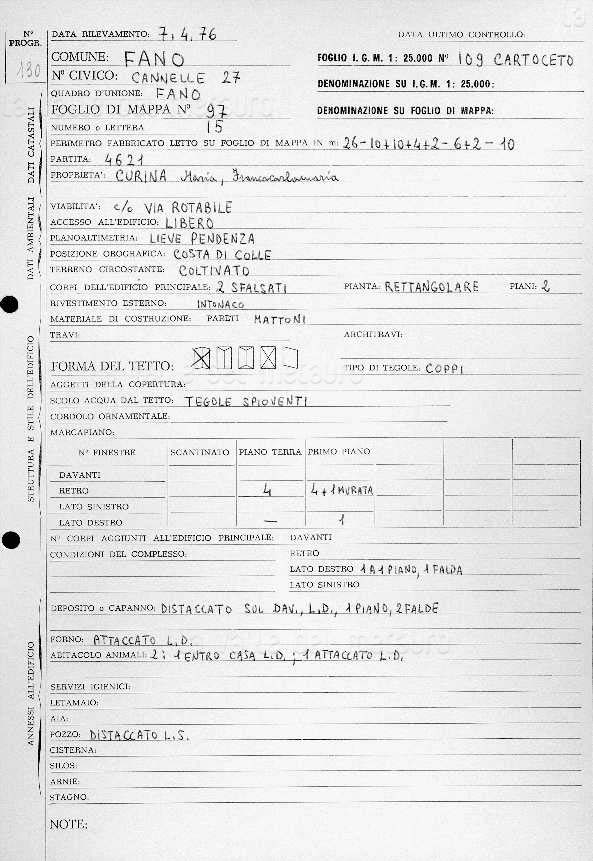 Nº PROGR. 130
DATA RILEVAMENTO: 7.4.76 DATA ULTIMO CONTROLLO:
COMUNE: FANO FOGLIO I.G.M. 1: 25.000 Nº 109 CARTOCETO
Nº CIVICO: CANNELLE 27 DENOMINAZIONE SU I.G.M. 1: 25.000:
QUADRO D'UNIONE: FANO
FOGLIO DI MAPPA Nº 97 DENOMINAZIONE SU FOGLIO DI MAPPA:
NUMERO o LETTERA 15
PERIMETRO FABBRICATO LETTO SU FOGLIO DI MAPPA IN m: 26-10+10+4+2-6+2-10
PARTITA: 4621
PROPRIETA': CURINA Maria, Francacarlamaria
DATI CATASTALI
VIABILITA': c/o VIA ROTABILE
ACCESSO ALL'EDIFICIO: LIBERO
PLANOALTIMETRIA: LIEVE PENDENZA
POSIZIONE OROGRAFICA: COSTA DI COLLE
TERRENO CIRCOSTANTE: COLTIVATO
DATI AMBIENTALI
CORPI DELL'EDIFICIO PRINCIPALE: 2 SFALSATI PIANTA: RETTANGOLARE PIANI: 2
RIVESTIMENTO ESTERNO: INTONACO
MATERIALE DI COSTRUZIONE: PARETI MATTONI
TRAVI: ARCHITRAVI:
FORMA DEL TETTO: TIPO DI TEGOLE: COPPI
AGGETTI DELLA COPERTURA:
SCOLO ACQUA DAL TETTO: TEGOLE SPIOVENTI
CORDOLO ORNAMENTALE:
MARCAPIANO:
STRUTTURA E STILE DELL'EDIFICIO
Nº FINESTRE SCANTINATO PIANO TERRA PRIMO PIANO
DAVANTI
RETRO 4 4+1 MURATA
LATO SINISTRO
LATO DESTRO — 1
Nº CORPI AGGIUNTI ALL'EDIFICIO PRINCIPALE: DAVANTI
CONDIZIONI DEL COMPLESSO: RETRO
LATO DESTRO 1 A 1 PIANO, 1 FALDA
LATO SINISTRO
DEPOSITO o CAPANNO: DISTACCATO SUL DAV., L.D., 1 PIANO, 2 FALDE
FORNO: ATTACCATO L.D.
ABITACOLO ANIMALI: 2: 1 ENTRO CASA L.D.; 1 ATTACCATO L.D.
SERVIZI IGIENICI:
LETAMAIO:
AIA:
POZZO: DISTACCATO L.S.
CISTERNA:
SILOS:
ARNIE:
STAGNO:
ANNESSI ALL'EDIFICIO
NOTE: